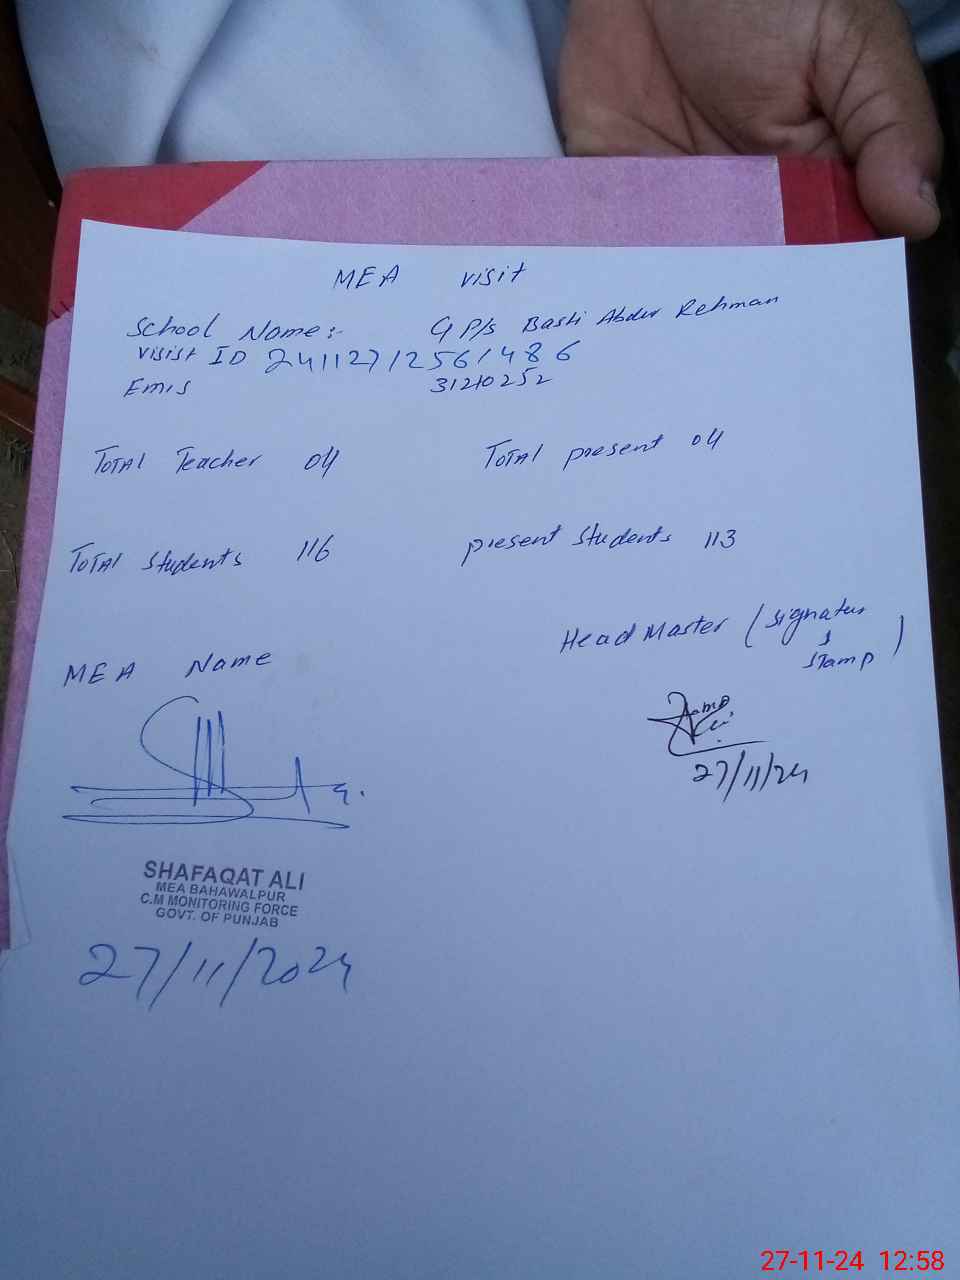 MEA visit
School Name:- G P/s Basti Abdur Rehman
visist ID 24112712561486
Emis 31210252
Total Teacher 04 Total present 04
Total Students 116 present students 113
MEA Name Head Master (signatur & stamp)
27/11/24
SHAFAQAT ALI
MEA BAHAWALPUR
C.M MONITORING FORCE
GOVT. OF PUNJAB
27/11/2024
27-11-24 12:58